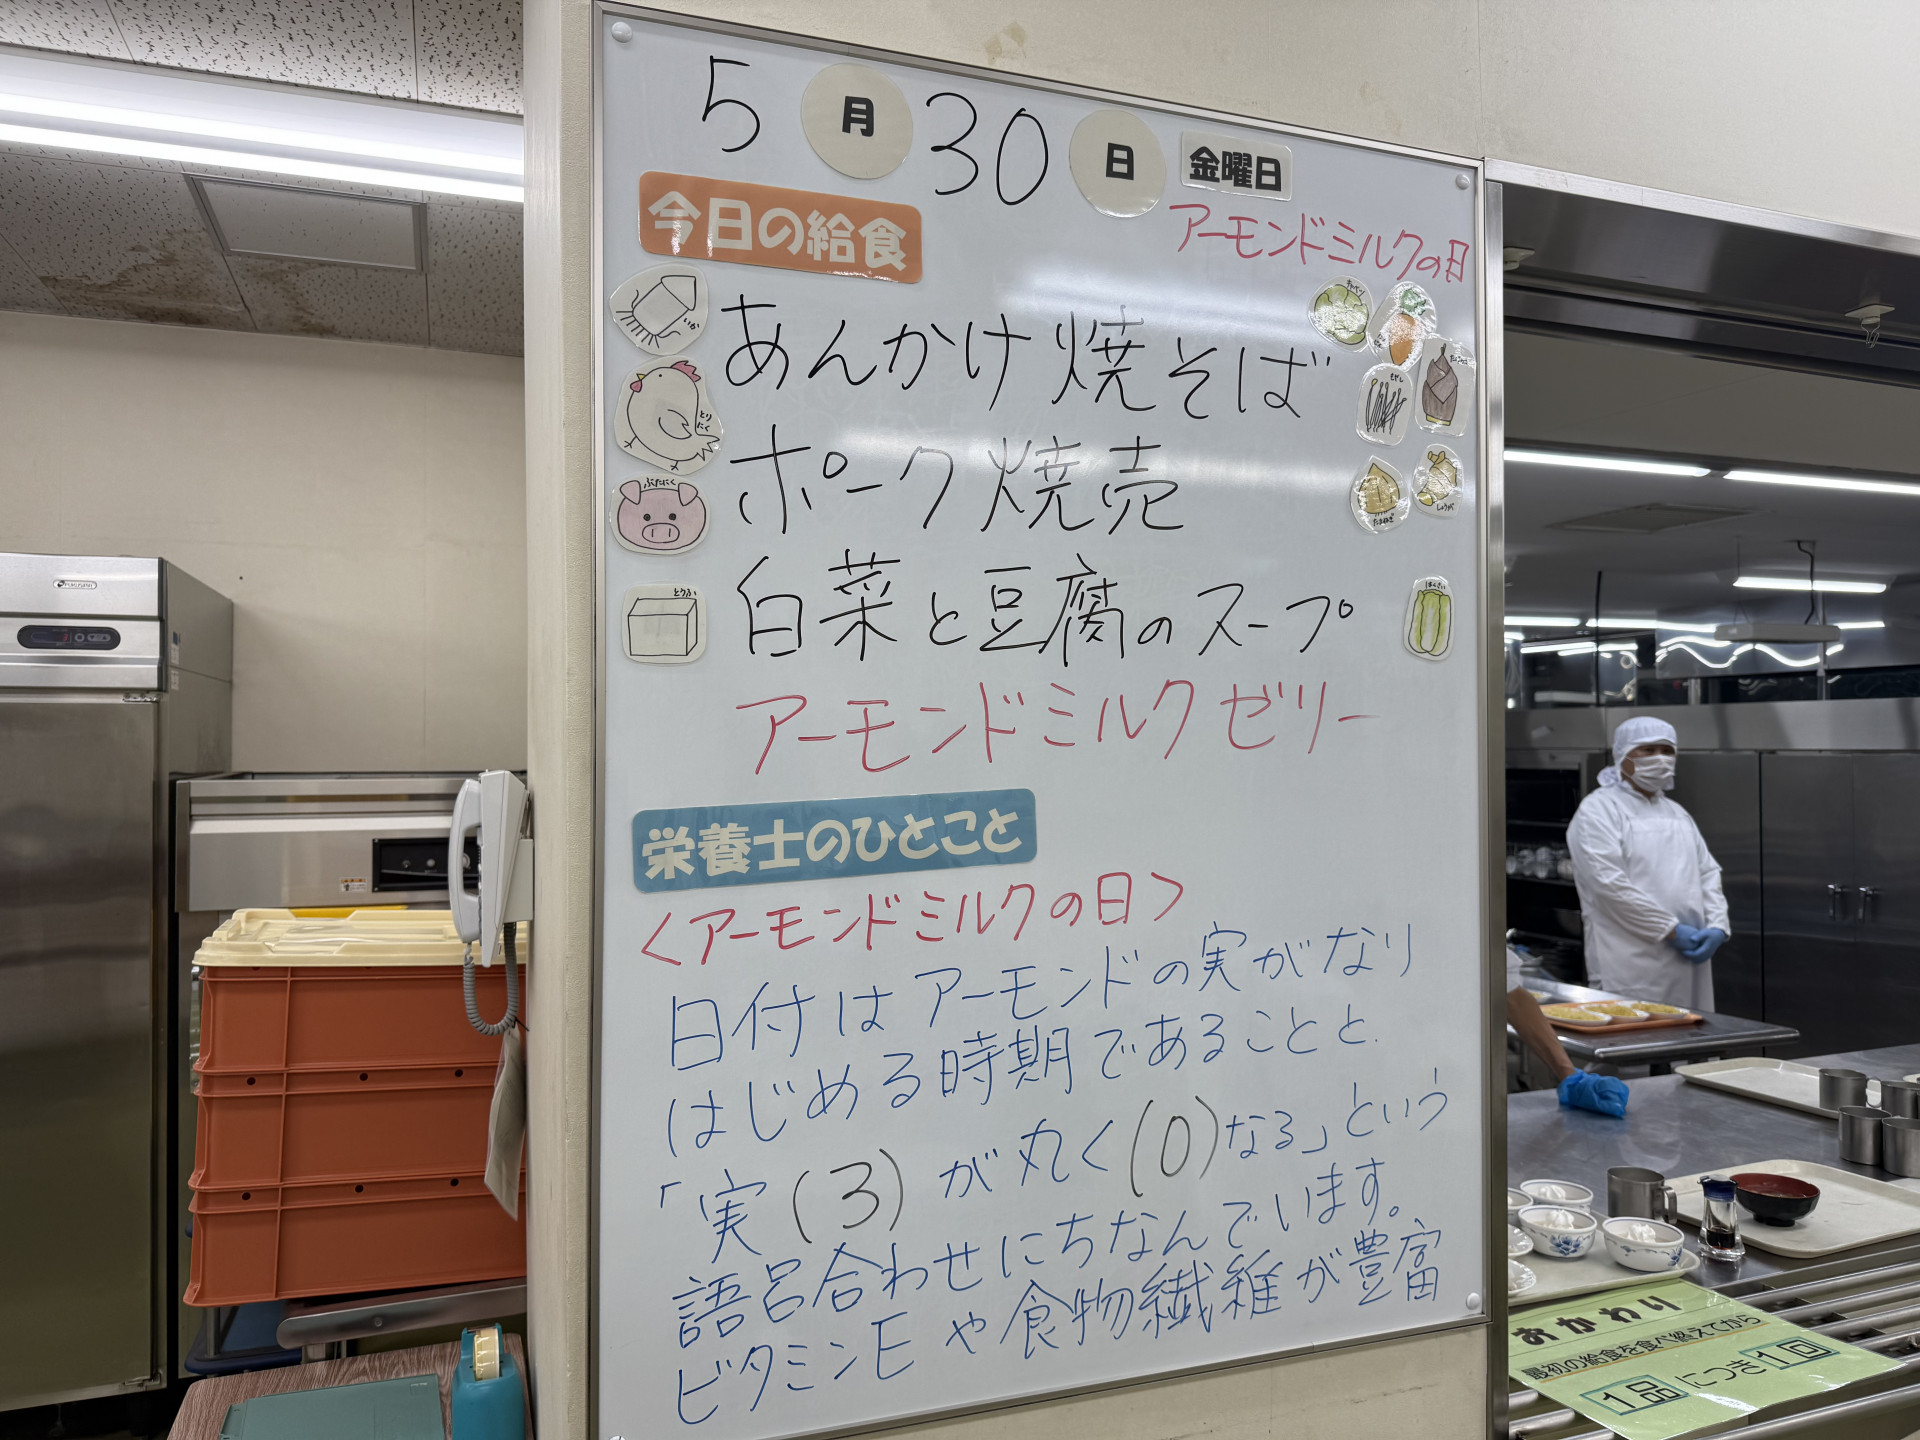 5月30日 金曜日
今日の給食
アーモンドミルクの日
いか
とりにく
ぶたにく
とうふ
あんかけ焼そば
ポーク焼売
白菜と豆腐のスープ
アーモンドミルクゼリー
キャベツ
もやし
たまねぎ
しょうが
はくさい
栄養士のひとこと
<アーモンドミルクの日>
日付はアーモンドの実がなり
はじめる時期であることと、
「実(3)が丸く(0)なる」という
語呂合わせにちなんでいます。
ビタミンEや食物繊維が豊富
おかわり
最初の給食を食べ終えてから
1品につき1回